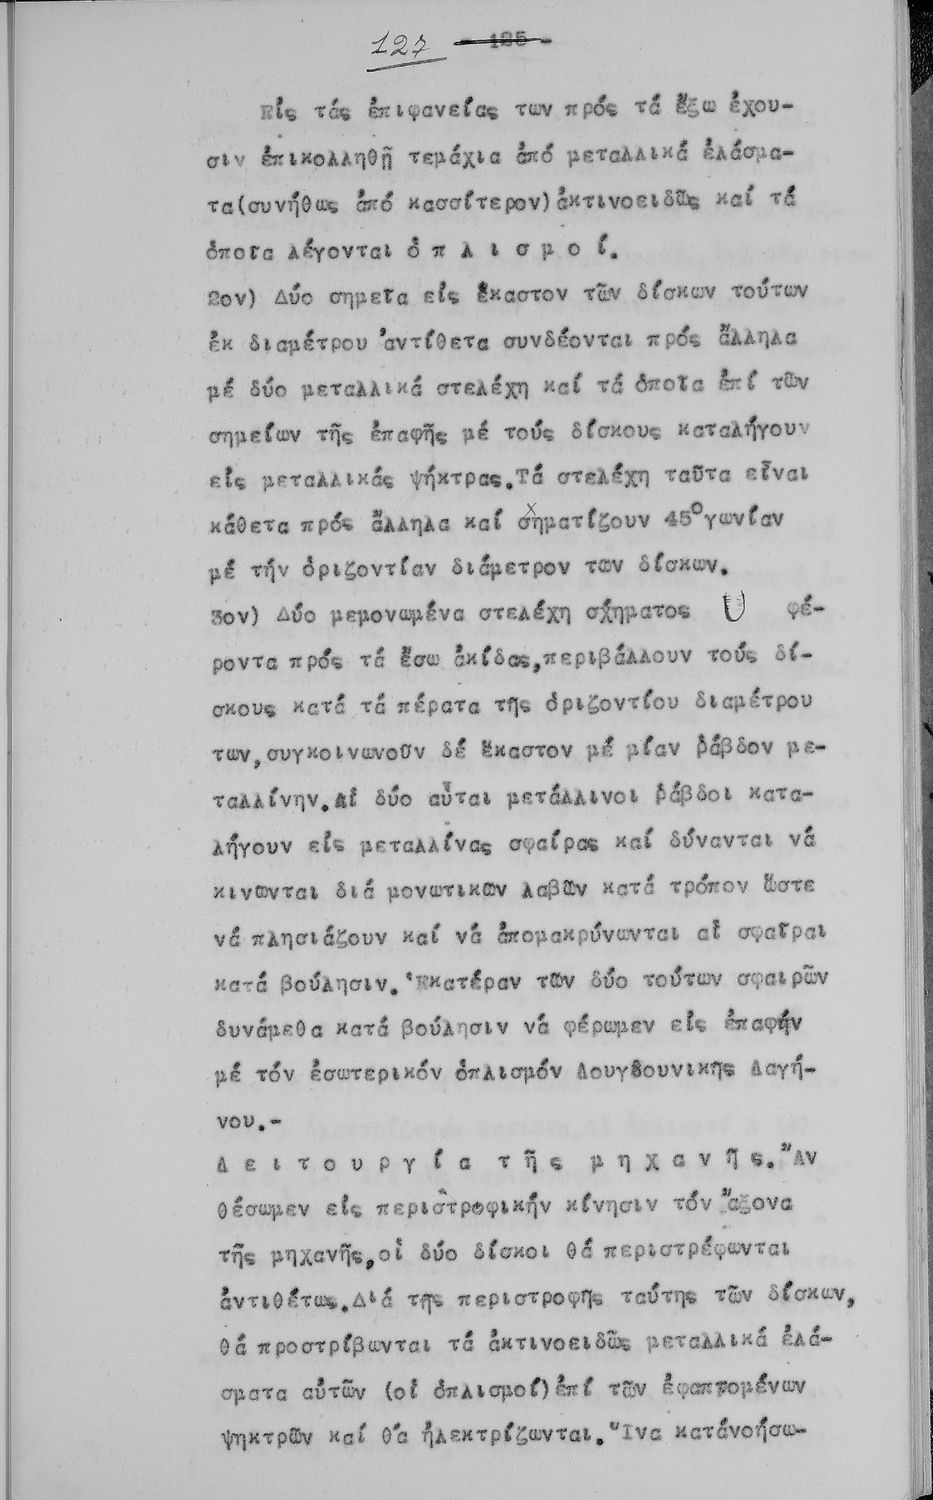 127 - 125 -
Εἰς τάς ἐπιφανείας των πρός τά ἔξω ἔχου-
σιν ἐπικολληθῆ τεμάχια ἀπό μεταλλικά ἐλάσμα-
τα(συνήθως ἀπό κασσίτερον)ἀκτινοειδῶς καί τά
ὁποῖα λέγονται ὁ π λ ι σ μ ο ί.
2ον) Δύο σημεῖα εἰς ἕκαστον τῶν δίσκων τούτων
ἐκ διαμέτρου ἀντίθετα συνδέονται πρός ἄλληλα
μέ δύο μεταλλικά στελέχη καί τά ὁποῖα ἐπί τῶν
σημείων τῆς ἐπαφῆς μέ τούς δίσκους καταλήγουν
εἰς μεταλλικάς ψήκτρας.Τά στελέχη ταῦτα εἶναι
κάθετα πρός ἄλληλα καί σχηματίζουν 45ογωνίαν
μέ τήν ὁριζοντίαν διάμετρον των δίσκων.
3ον) Δύο μεμονωμένα στελέχη σχήματος U φέ-
ροντα πρός τά ἔσω ἀκίδας,περιβάλλουν τούς δί-
σκους κατά τά πέρατα τῆς ὁριζοντίου διαμέτρου
των,συγκοινωνοῦν δέ ἕκαστον μέ μίαν ῥάβδον με-
ταλλίνην.Αἱ δύο αὗται μετάλλινοι ῥάβδοι κατα-
λήγουν εἰς μεταλλίνας σφαίρας καί δύνανται νά
κινῶνται διά μονωτικῶν λαβῶν κατά τρόπον ὥστε
νά πλησιάζουν καί νά ἀπομακρύνωνται αἱ σφαῖραι
κατά βούλησιν.Ἑκατέραν τῶν δύο τούτων σφαιρῶν
δυνάμεθα κατά βούλησιν νά φέρωμεν εἰς ἐπαφήν
μέ τόν ἐσωτερικόν ὁπλισμόν Λουγδουνικῆς Λαγή-
νου.-
Λ ε ι τ ο υ ρ γ ί α τ ῆ ς μ η χ α ν ῆ ς.Ἄν
θέσωμεν εἰς περιστροφικήν κίνησιν τόν ἄξονα
τῆς μηχανῆς,οἱ δύο δίσκοι θά περιστρέφωνται
ἀντιθέτως.Διά τῆς περιστροφῆς ταύτης τῶν δίσκων,
θά προστρίβωνται τά ἀκτινοειδῶς μεταλλικά ἐλά-
σματα αὐτῶν (οἱ ὁπλισμοί)ἐπί τῶν ἐφαπτομένων
ψηκτρῶν καί θά ἠλεκτρίζωνται.Ἵνα κατανοήσω-